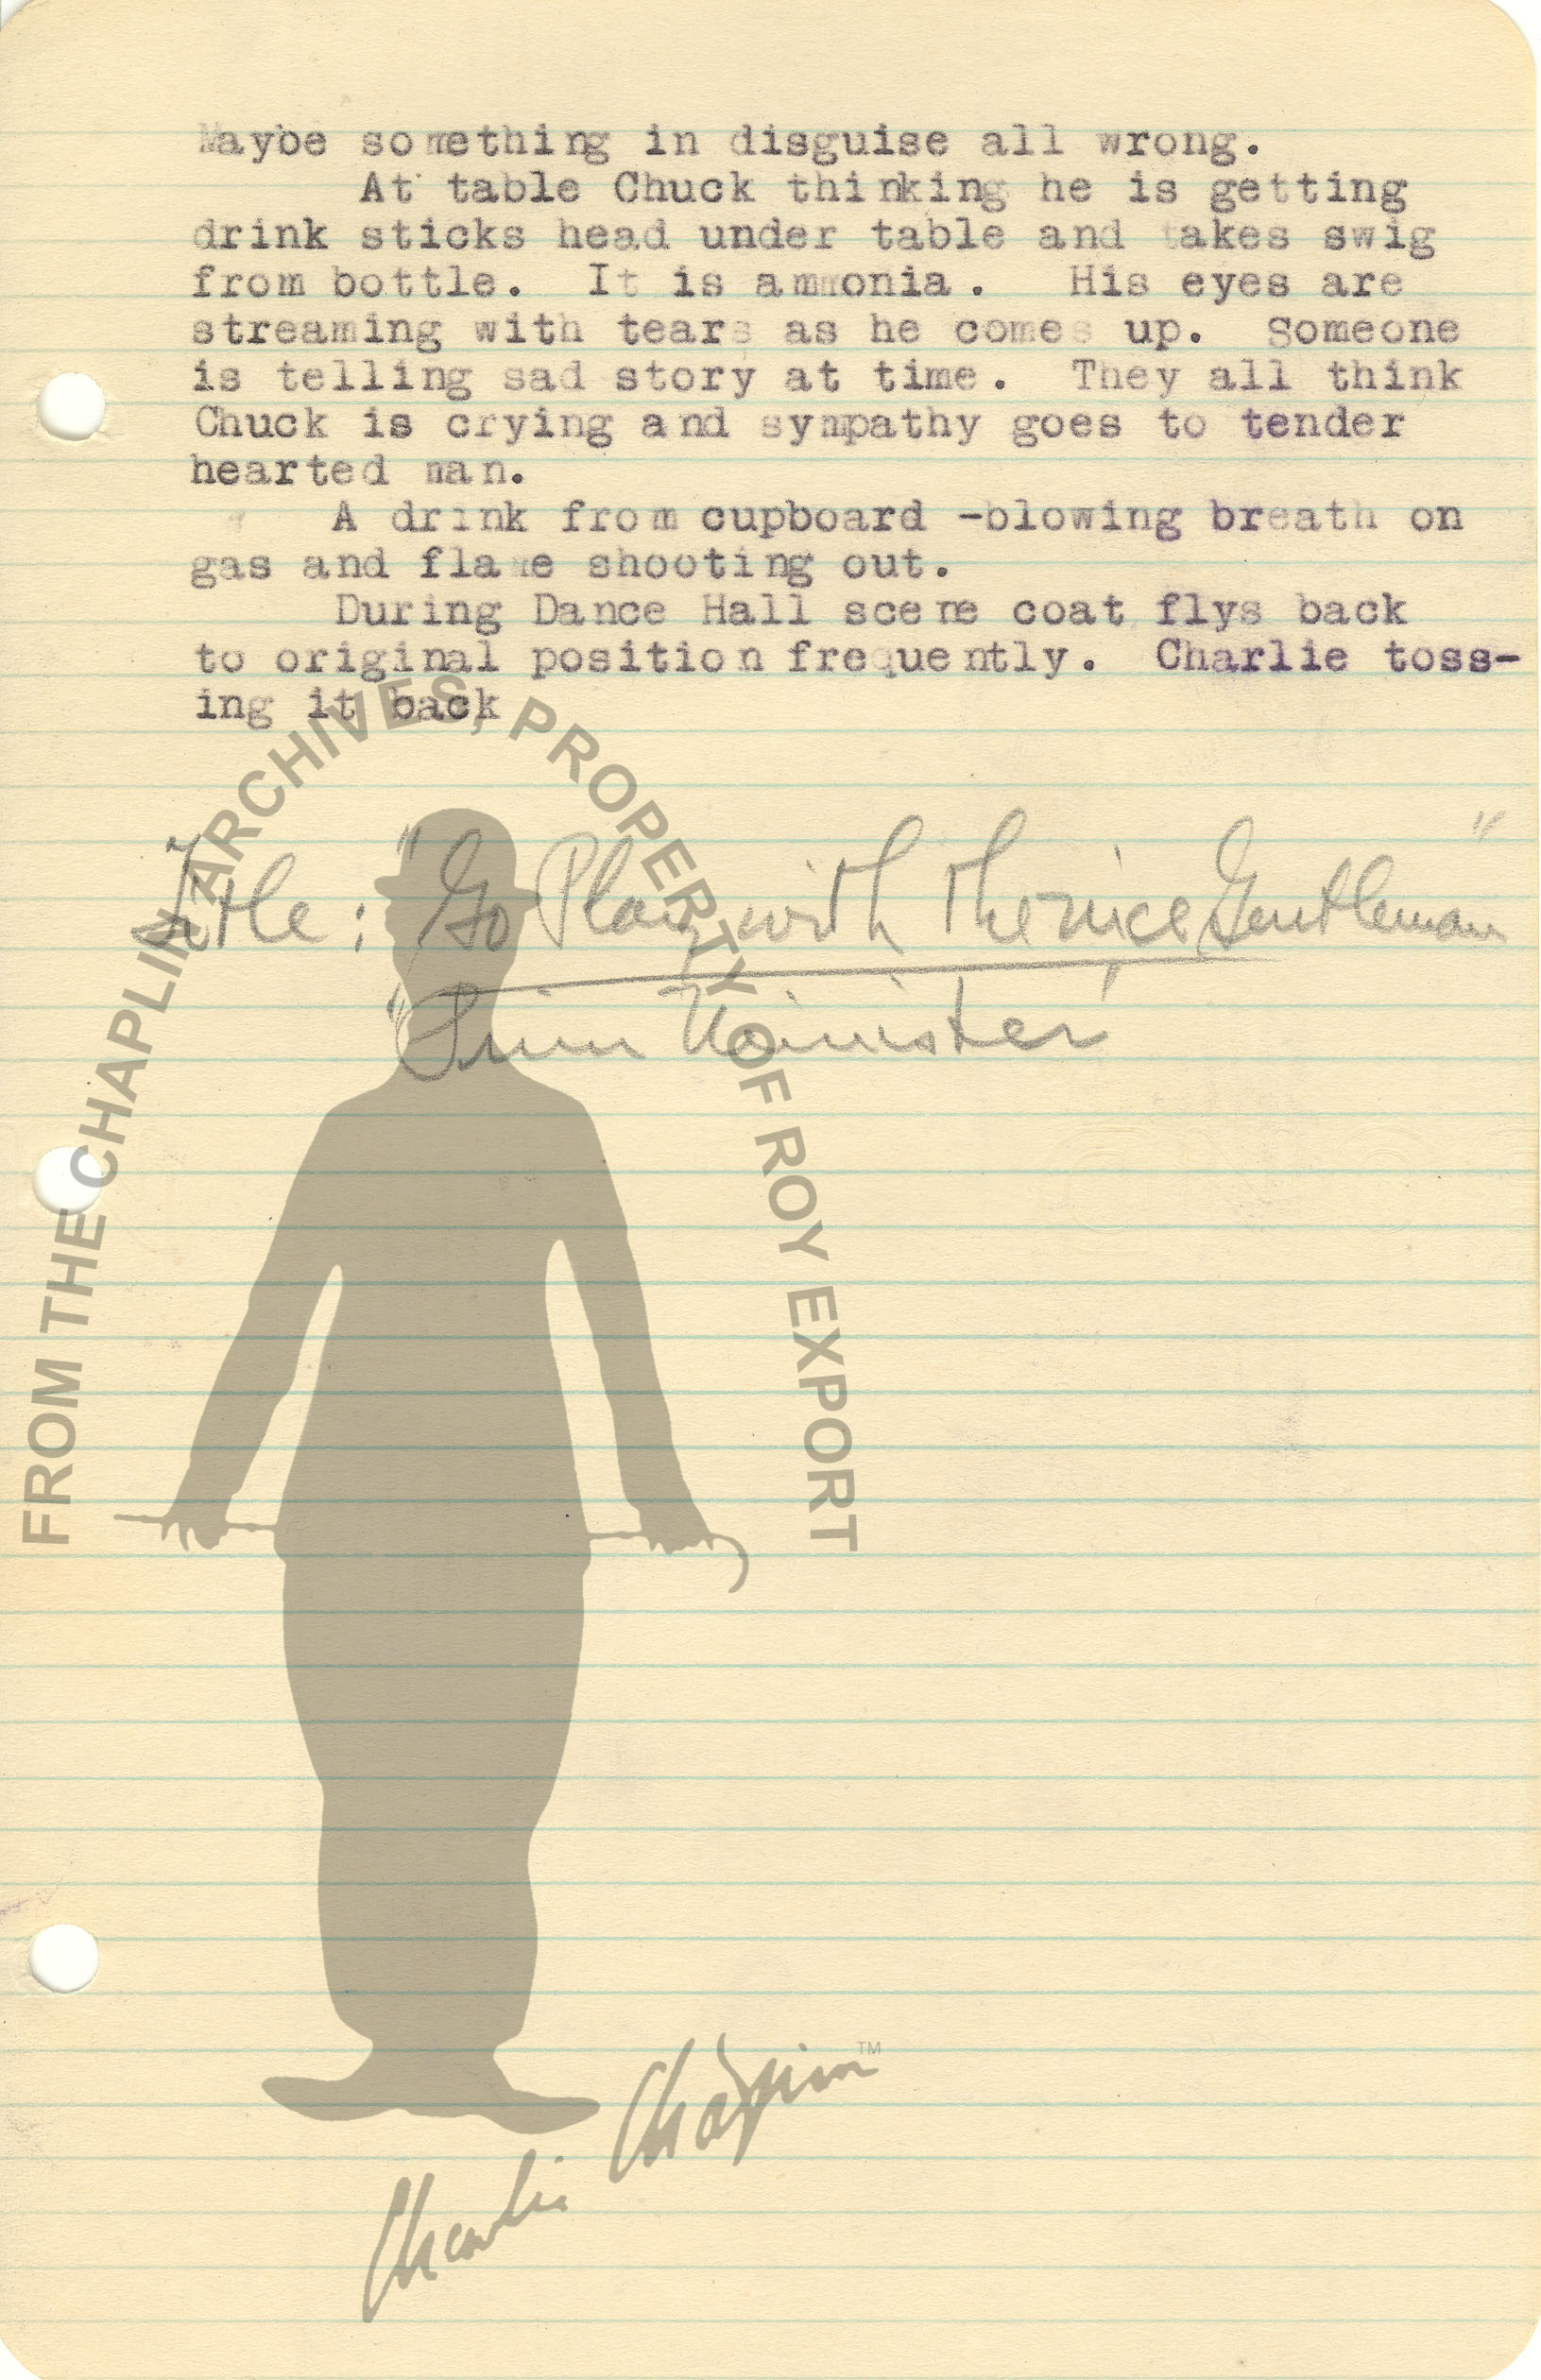 Maybe something in disguise all wrong.
At table Chuck thinking he is getting
drink sticks head under table and takes swig
from bottle. It is ammonia. His eyes are
streaming with tears as he comes up. Someone
is telling sad story at time. They all think
Chuck is crying and sympathy goes to tender
hearted man.
A drink from cupboard -blowing breath on
gas and flame shooting out.
During Dance Hall scene coat flys back
to original position frequently. Charlie toss-
ing it back
Title: "Go Play with the nice Gentleman"
Minister"
FROM THE CHAPLIN ARCHIVES, PROPERTY OF ROY EXPORT
Charlie Chaplin TM